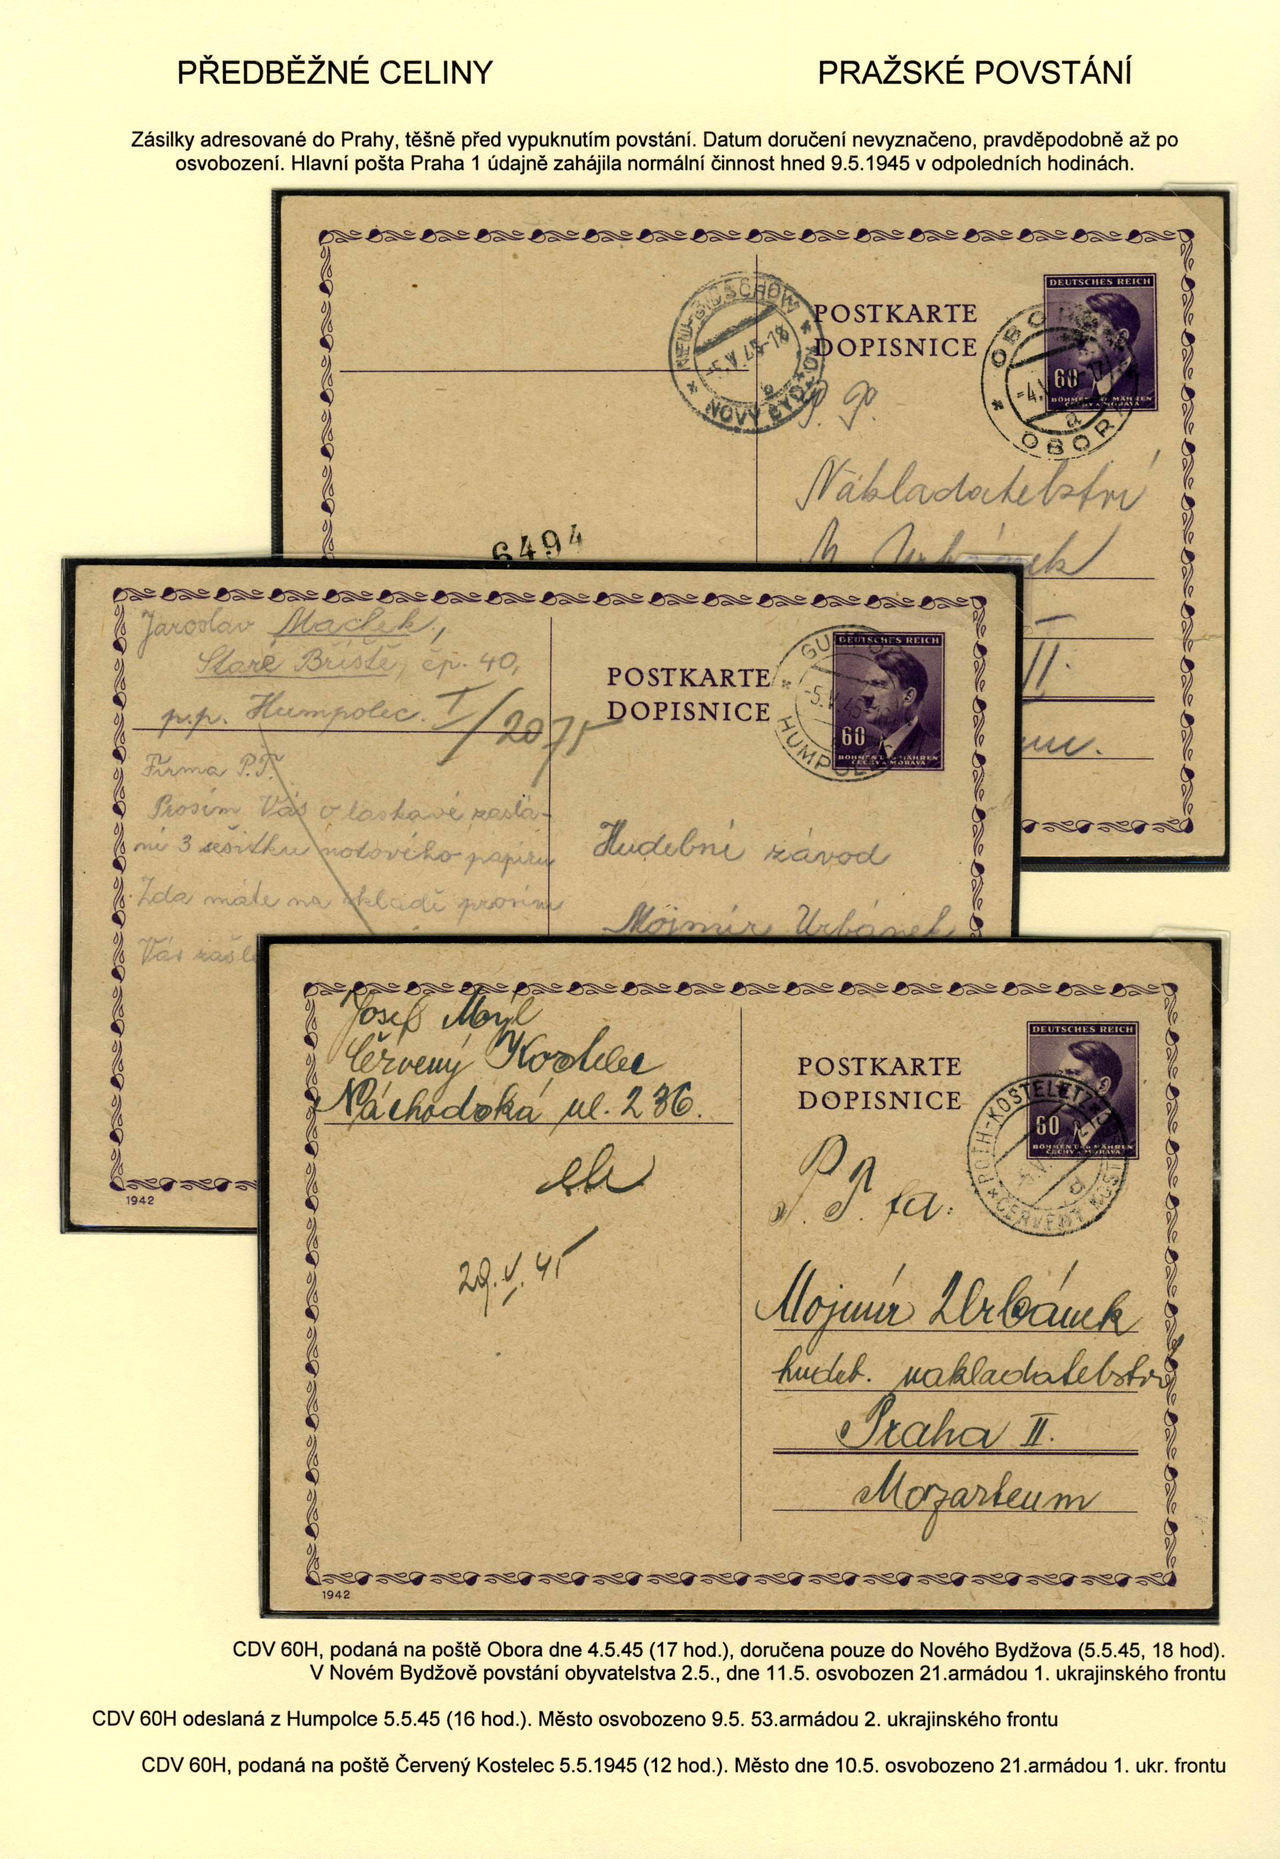 PŘEDBĚŽNÉ CELINY
PRAŽSKÉ POVSTÁNÍ
Zásilky adresované do Prahy, těšně před vypuknutím povstání. Datum doručení nevyznačeno, pravděpodobně až po
osvobození. Hlavní pošta Praha 1 údajně zahájila normální činnost hned 9.5.1945 v odpoledních hodinách.
NEU-BIDSCHOW
-5.V.45-18
NOVÝ BYDŽOV
POSTKARTE
DOPISNICE
DEUTSCHES REICH
60
BÖHMEN u. MÄHREN
ČECHY a MORAVA
OBORA
-4.V
17
a
OBORA
P. P.
Nakladatelství
M. Urbánek
II.
6494
Jaroslav Machek,
Staré Bříště, čp. 40,
p.p. Humpolec.
I/2075
Firma P.T.
Prosím Vás o laskavé zaslá-
ní 3 sešitků notového papíru
Zda máte na skladě prosím
Vás
POSTKARTE
DOPISNICE
DEUTSCHES REICH
60
BÖHMEN u. MÄHREN
ČECHY a MORAVA
-5.V.45
HUMPOLEC
Hudební závod
Mojmír Urbánek
1942
Josef Mýl
Červený Kostelec
Náchodská ul. 236.
29.V.45
POSTKARTE
DOPISNICE
DEUTSCHES REICH
60
BÖHMEN u. MÄHREN
ČECHY a MORAVA
ROTH-KOSTELETZ
d
ČERVENÝ KOST
P. P. fa:
Mojmír Urbánek
hudeb. nakladatelství
Praha II.
Mozarteum
1942
CDV 60H, podaná na poště Obora dne 4.5.45 (17 hod.), doručena pouze do Nového Bydžova (5.5.45, 18 hod).
V Novém Bydžově povstání obyvatelstva 2.5., dne 11.5. osvobozen 21.armádou 1. ukrajinského frontu
CDV 60H odeslaná z Humpolce 5.5.45 (16 hod.). Město osvobozeno 9.5. 53.armádou 2. ukrajinského frontu
CDV 60H, podaná na poště Červený Kostelec 5.5.1945 (12 hod.). Město dne 10.5. osvobozeno 21.armádou 1. ukr. frontu